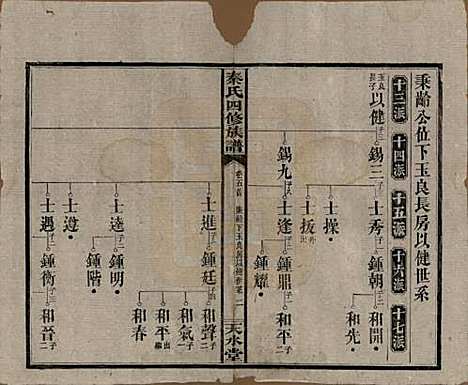 秉齡公位下玉良長房以健世系
十三派
十四派
十五派
十六派
十七派
玉良長子
以健
錫三
士秀
鍾朝
和開
和先
士操
士拔
錫九
士逢
鍾鼎
和平
鍾耀
秦氏四修族譜
卷五
天水堂
士進
鍾廷
和聲
和氣
和平
和春
士達
鍾明
鍾階
士遵
士遇
鍾衡
和晉